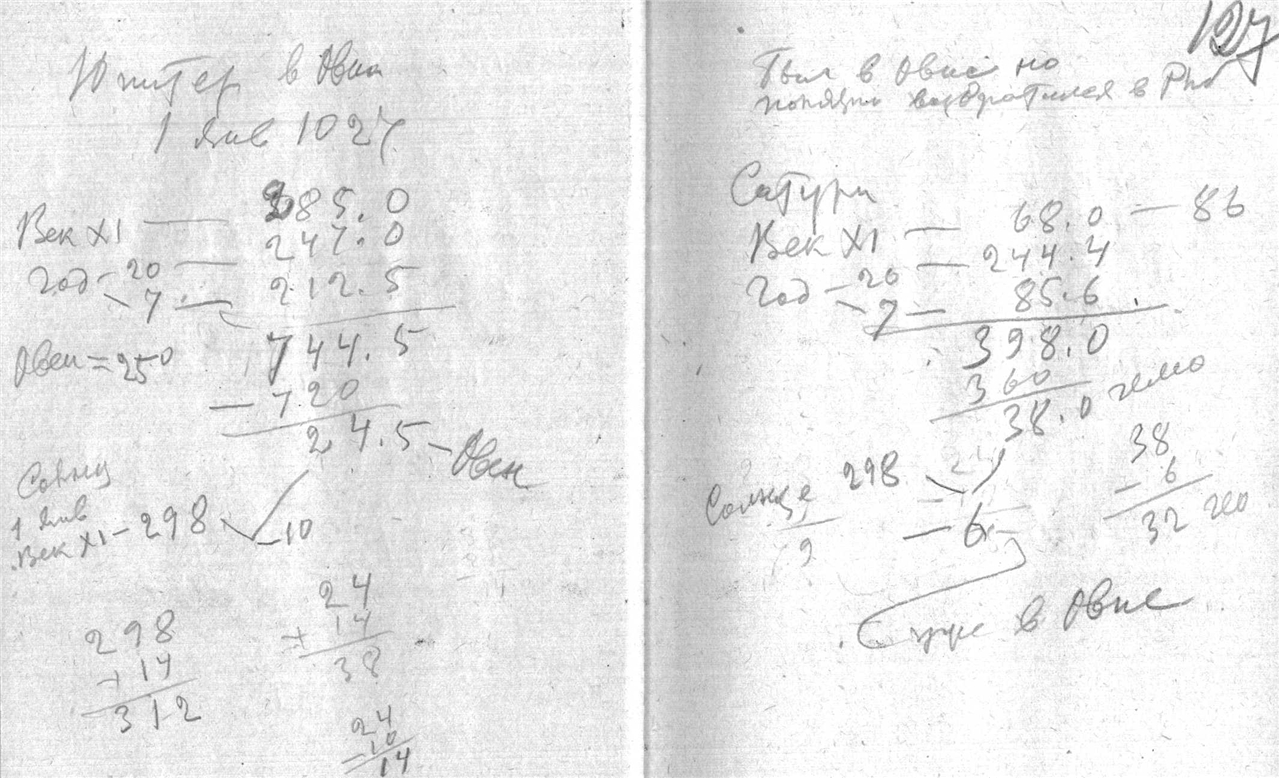 Юпитер в Овне
1 Янв 1027
Век XI — 285.0
Год — 20 — 247.0
— 7 — 212.5
744.5
Овен = 250
— 720
24.5 — Овен
Солнц
1 Янв
Век XI — 298 — 10
298
+ 14
312
24
+ 14
38
24
10
14
127
Был в Овне но
возвратился в
Сатурн
Век XI — 68.0 — 86
Год — 20 — 244.4
— 7 — 85.6
398.0
360
38.0 гело
Солнце 298
9
— 6
38
— 6
32 гео
уже в Овне